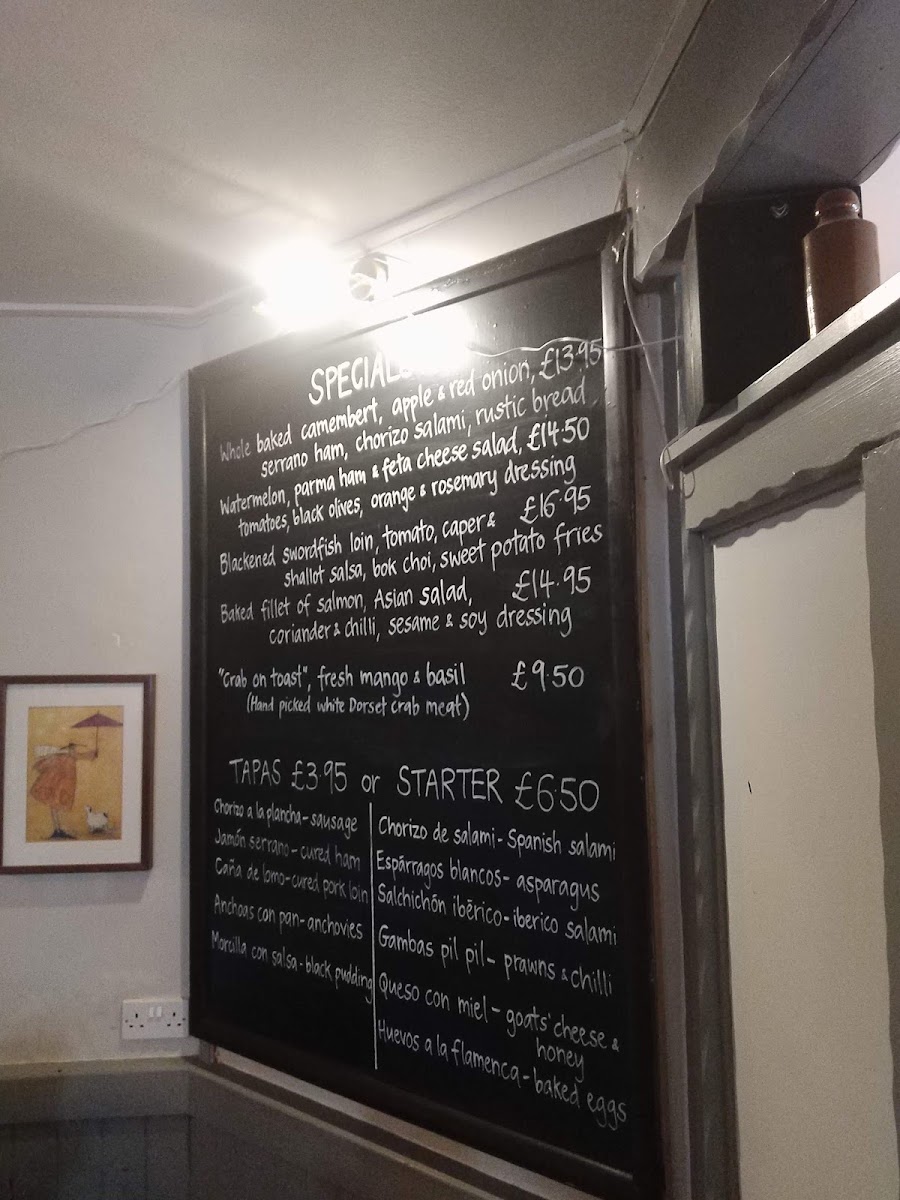 SPECIALS
Whole baked camembert, apple & red onion, £13.95
serrano ham, chorizo salami, rustic bread
Watermelon, parma ham & feta cheese salad, £14.50
tomatoes, black olives, orange & rosemary dressing
Blackened swordfish loin, tomato, caper & £16.95
shallot salsa, bok choi, sweet potato fries
Baked fillet of salmon, Asian salad, £14.95
coriander & chilli, sesame & soy dressing
"Crab on toast", fresh mango & basil £9.50
(Hand picked white Dorset crab meat)
TAPAS £3.95 or STARTER £6.50
Chorizo a la plancha - sausage
Jamón serrano - cured ham
Caña de lomo - cured pork loin
Anchoas con pan - anchovies
Morcilla con salsa - black pudding
Chorizo de salami - Spanish salami
Espárragos blancos - asparagus
Salchichón ibérico - iberico salami
Gambas pil pil - prawns & chilli
Queso con miel - goats' cheese &
honey
Huevos a la flamenca - baked eggs